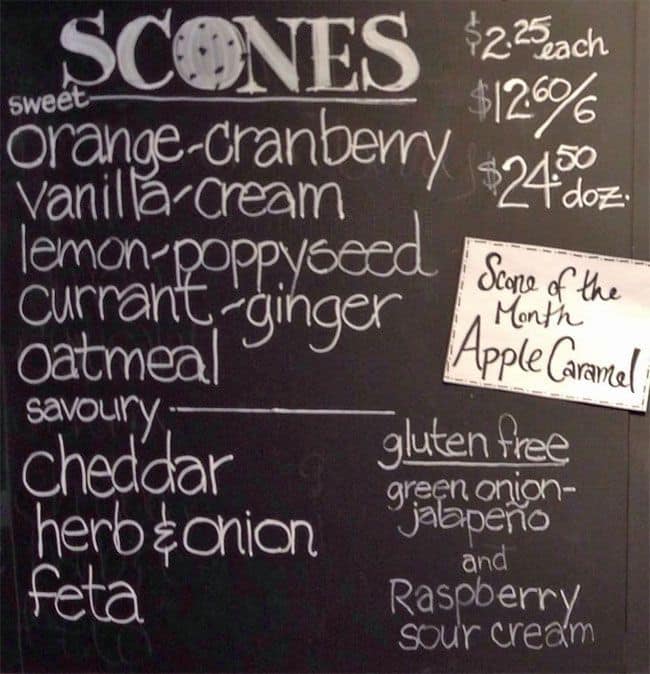 SCONES
$2.25 each
$12.60/6
$24.50 doz.
sweet
orange-cranberry
vanilla-cream
lemon-poppyseed
currant-ginger
oatmeal
Scone of the
Month
Apple Caramel
savoury
cheddar
herb & onion
feta
gluten free
green onion-
jalapeño
and
Raspberry
sour cream